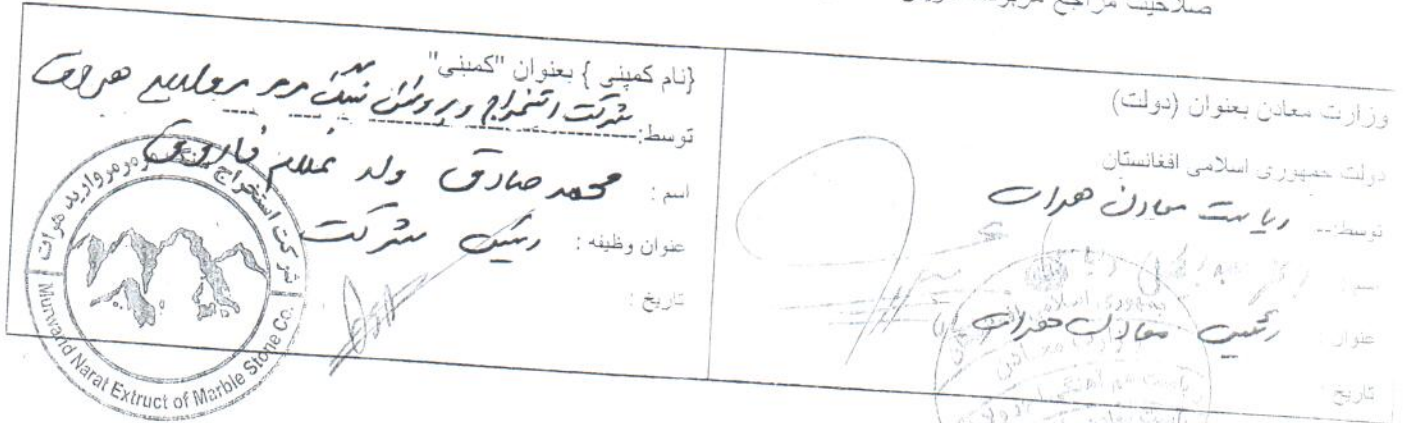 صلاحیت مراجع
وزارت معادن بعنوان (دولت)
دولت جمهوری اسلامی افغانستان
توسط: ریاست معادن هرات
اسم:
عنوان: رئیس معادن هرات
تاریخ:
{نام کمپنی } بعنوان "کمپنی"
شرکت استخراج و پروسس سنگ مرمر مروارید هرات
توسط:
اسم : محمد صادق ولد غلام فاروق
عنوان وظیفه : رئیس شرکت
تاریخ :
شرکت استخراج سنگ مرمر مروارید هرات
Murwarid Narat Extruct of Marble Stone Co.
جمهوری اسلامی
وزارت معادن